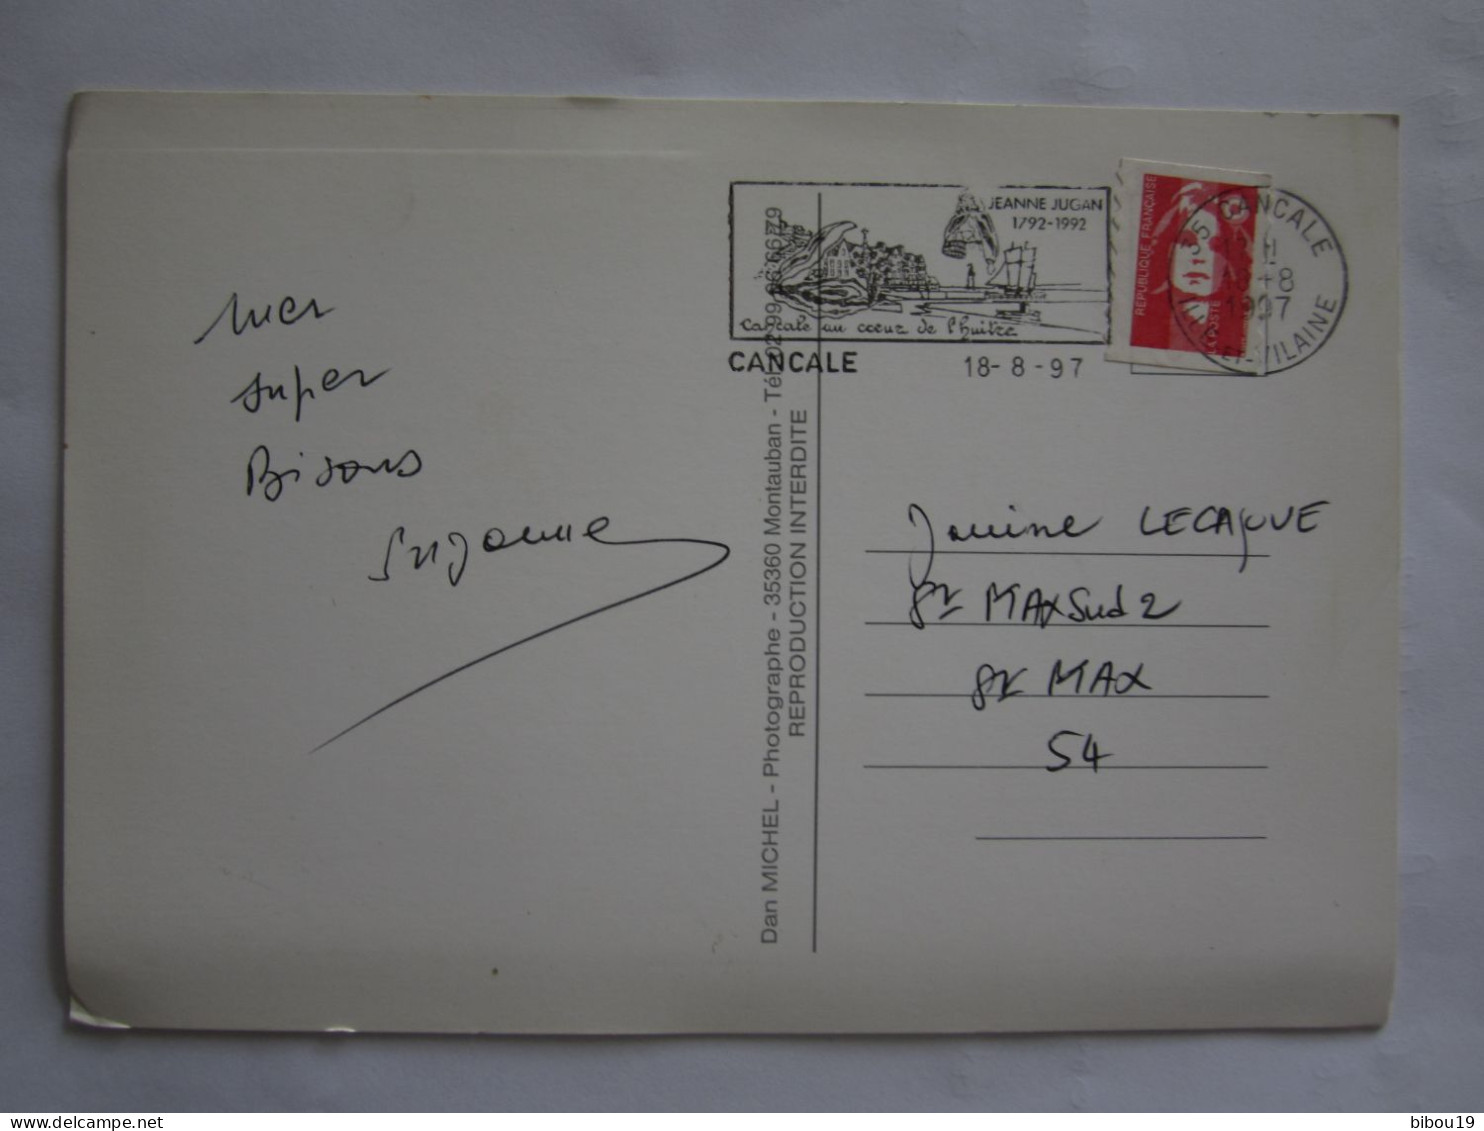 mer
super
Bisous
Suzanne
Dan MICHEL - Photographe - 35360 Montauban - Tél. 02 99 06 66 79
REPRODUCTION INTERDITE
JEANNE JUGAN
1792-1992
Cancale au coeur de l'huître
CANCALE
18-8-97
RÉPUBLIQUE FRANÇAISE
LA POSTE
35 CANCALE
18-8
1997
ILLE ET-VILAINE
Janine
St MAX Sud 2
St MAX
54
bibou19